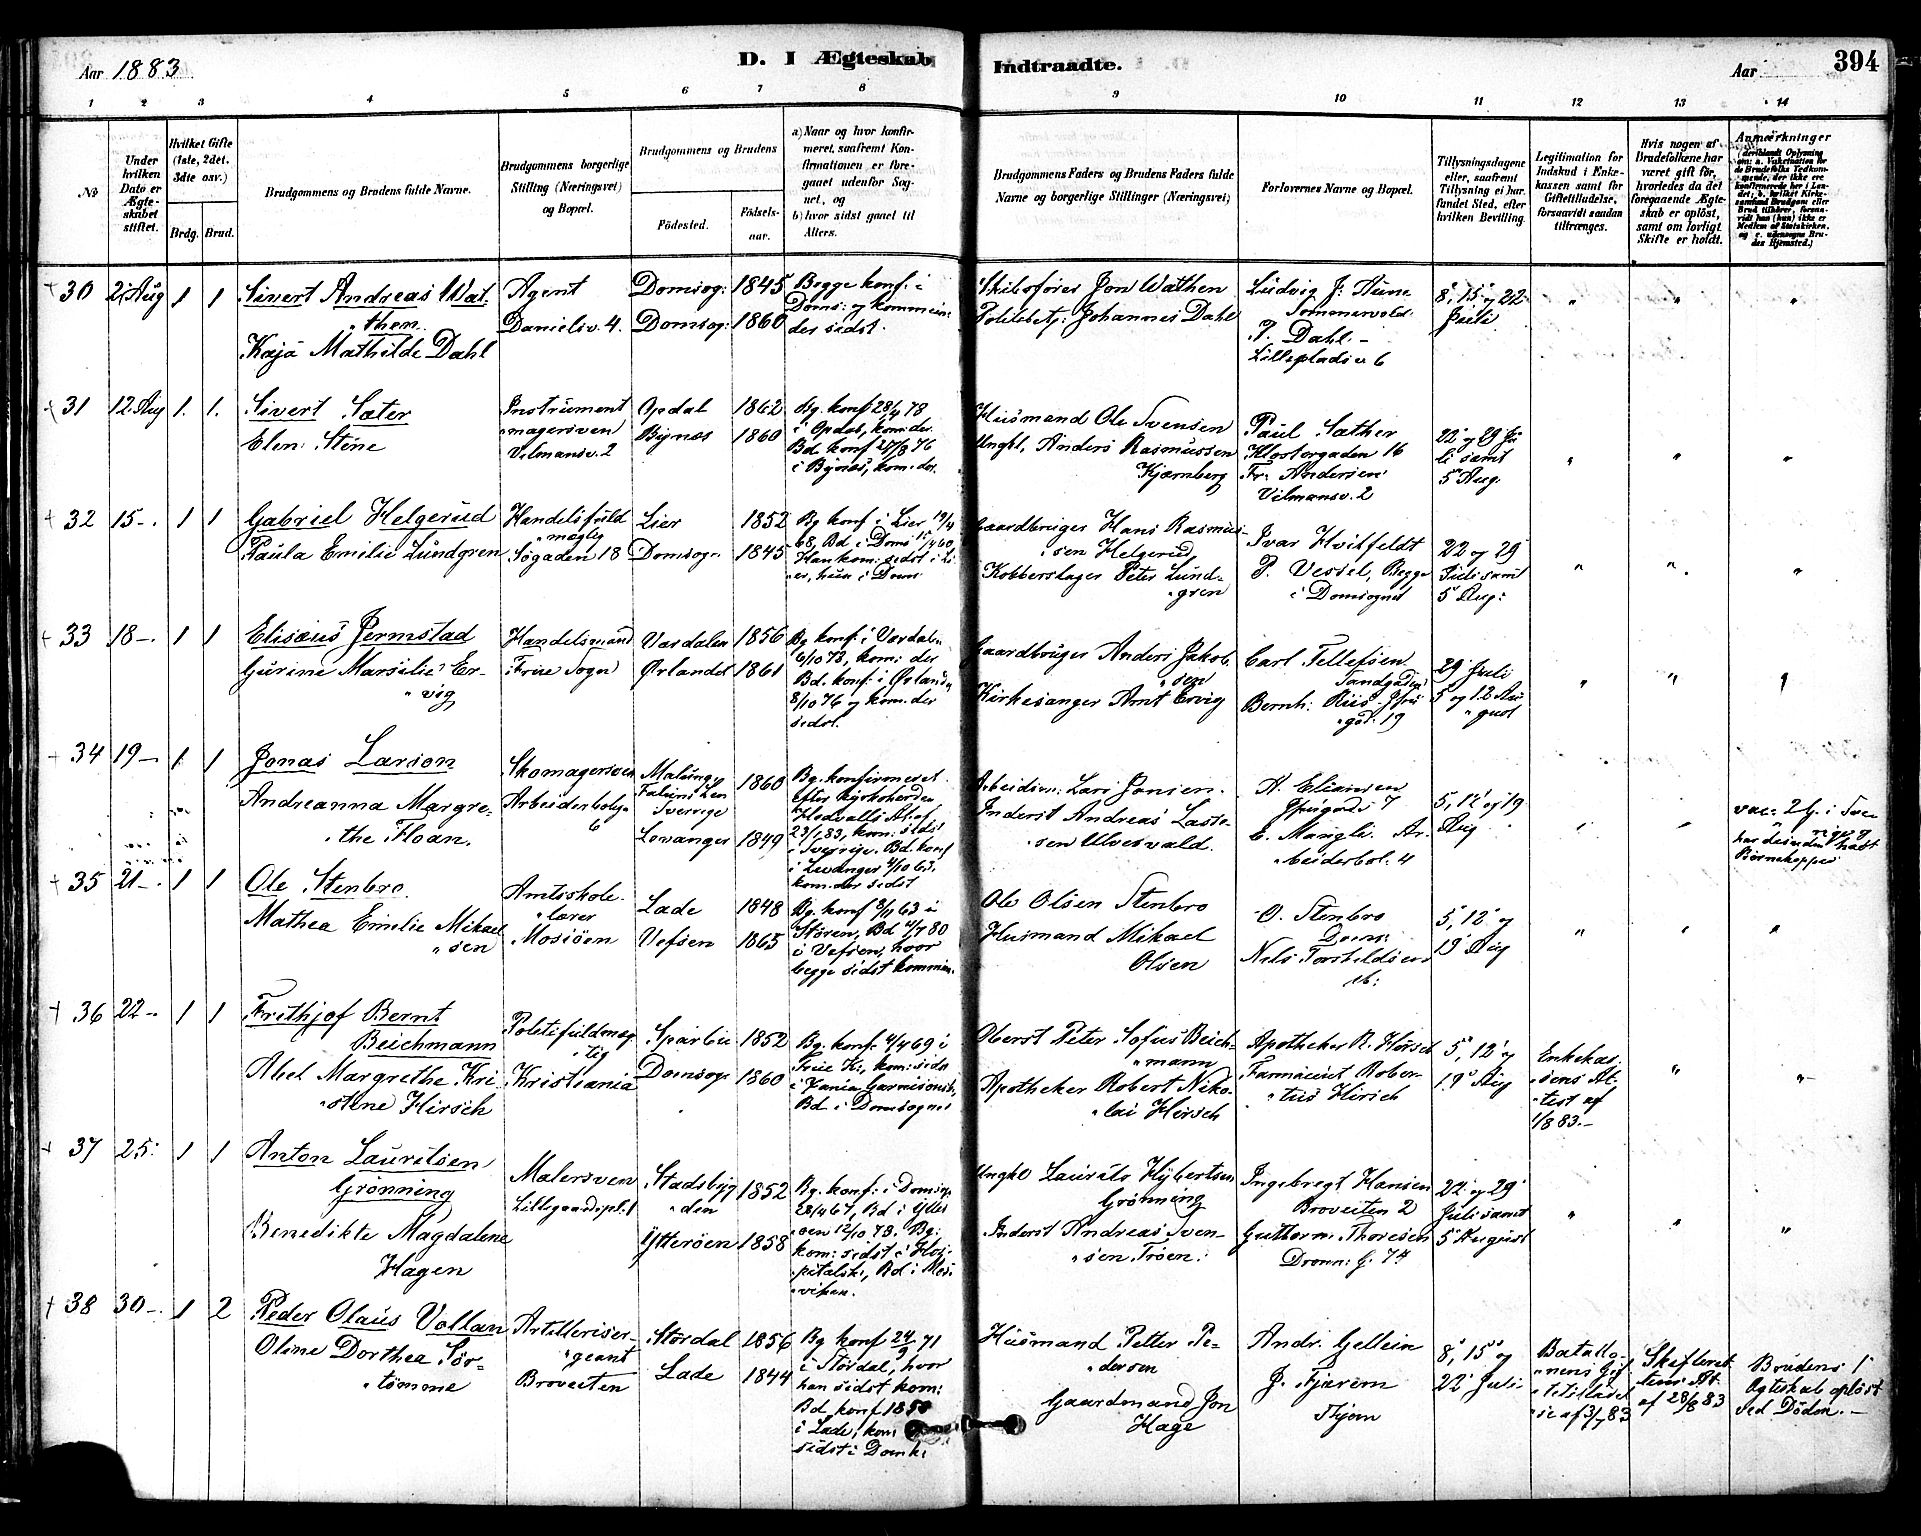 Aar 1883
D. I Ægteskab
Indtraadte.
Aar
394
1 2 3 4 5 6 7 8 9 10 11 12 13 14
No
Under hvilken Dato er Ægteskabet stiftet.
Hvilket Gifte (1ste, 2det. 3die osv.)
Brdg. Brud.
Brudgommens og Brudens fulde Navne.
Brudgommens borgerlige Stilling (Næringsvei) og Bopæl.
Brudgommens og Brudens
Fødested.
Fødselsaar.
a) Naar og hvor konfirmeret, saafremt Konfirmationen er foregaaet udenfor Sognet, og
b) hvor sidst gaaet til Alters.
Brudgommens Faders og Brudens Faders fulde Navne og borgerlige Stillinger (Næringsvei)
Forlovernes Navne og Bopæl.
Tillysningsdagene eller, saafremt Tillysning ei har fundet Sted, efter hvilken Bevilling.
Legitimation for Indskud i Enkekassen samt for Giftetilladelse, forsaavidt saadan tiltrænges.
Hvis nogen af Brudefolkene har været gift før, hvorledes da det foregaaende Ægteskab er opløst, samt om lovligt Skifte er holdt.
Anmærkninger
30 2 Aug 1 1
Sivert Andreas Wathen
Kaja Mathilde Dahl
Agent
Danielsv. 4.
Domsog: 1845
Domsog: 1860
Begge konf: i Doms: og kommunder sidst.
Skibsfører Jon Wathen
Johannes Dahl
Ludvig J. Aune
P. Dahl
Lilleplads v 6
8', 15' og 22' Juli
31 12 Aug 1. 1.
Sivert Sæter
Elen Stine
Instrumentmagersven
Vilmansv. 2
Opdal 1862
Bynæs 1860
Bg. konf 28/4 78 i Opdal, kom: der
Bd konf 27/8 76 i Bynæs, kom: der.
Husmand Ole Svensen
Ungkl, Anders Rasmussen Kjernberg
Paul Sæther
Klostergaden 16
Fr: Andersen
Vilmansv. 2
22' og 29 Juli samt 5' Aug.
32 15 - 1 1
Gabriel Helgerud
Paula Emilie Lundgren
Handelsfuldmægtig
Søgaden 18
Lier 1852
Domsogn 1845
Bg konf i Lier 19/4 68, Bd i Doms 15/4 60
Han kom: sidst i Lier, hun i Doms
Gaardbruger Hans Rasmussen Helgerud
Kobberslager Peter Lundgren
Ivar Hvitfeldt
P. Vessel, Begge i Domsognet
22 og 29' Juli samt 5' Aug:
33 18 - 1 1
Elisæus Jermstad
Gurine Marselie Ervig
Handelsmand
Frue Sogn
Værdalen 1856
Ørlandet 1861
Bg konf: i Værdalen 6/10 73, kom: der
Bd. konf: i Ørland 8/10 76 og kom: der sidst.
Gaardbruger Anders Jakobsen
Kirkesanger Arnt Ervig
Carl Tellefsen
Sandgaden
Bernh: Riis
29 Juli 5' og 12 August
34 19 - 1 1
Jonas Larson
Andreanna Margrethe Floan.
Skomagersven
Arbeiderbolig 6
Malung Faluns Len Sverrige 1860
Levanger 1849
Bg. konfirmeret efter kyrkoherden Hedvalls At. af 23/1 83, kom: sidst i Sverrige. Bd. konf i Levanger 4/10 63. kom. der sidst
Arbeidsm: Lars Jonsen.
Inderst Andreas Lassesen Ulvesvald.
K. Eliassen
E. Mangli. Arbeiderbol: 4
5, 12' og 19 Aug
35 21 - 1 1
Ole Stenbro
Mathea Emilie Mikaelsen
Amtsskolelærer
Mosiøen
Lade 1848
Vefsen 1865
Bg. konf 8/11 63 i Støren, Bd 4/7 80 i Vefsen, hvor begge sidst kommun.
Ole Olsen Stenbro
Husmand Mikael Olsen
O. Stenbro
Doms:
Nils Torkildsen
ib:
5, 12' og 19' Aug
36 22 - 1 1
Frithjof Bernt Beichmann
Abel Margrethe Kristene Hirsch
Politifuldmægtig
Kristiania
Sparbu 1852
Domsog 1860
Bg. konf: 4/4 69 i Frue K:, kom: sidst i Xania Garnisonsk, Bd i Domsognet
Oberst Peter Sofus Beichmann
Apotheker Robert Nikolai Hirsch
Apotheker R. Hirsch
Farmaceut Robertus Hirsch
5', 12' og 19' Aug
Enkekassens Attest af 1/8 83. -
37 25: 1 1
Anton Lauritsen Grønning
Benedikte Magdalene Hagen
Malersven
Lillegaardspl. 1
Stadsbygden 1852
Ytterøen 1858
Bg. konf: i Domsog 28/4 67, Bd i Ytterøen 12/10 73. Bg: kom: sidst i Hospitalsk:, Bd i Mosviken.
Ungkl Laurits Hybertsen Grønning
Inderst Andreas Svensen Trøen:
Ingebregt Hansen
Broveiten 2
Guthorm Thoresen
Dronn: G. 7
22' og 29' Juli samt 5' August
38 30 - 1 2
Peder Olaus Vollan
Oline Dorthea Sørtømme
Artillerisergeant
Broveiten
Størdal 1856
Lade 1844
Bg konf 24/9 71 i Størdal, hvor han sidst kom:
Bd konf 18 i Lade, kom: sidst i Domk:
Husmand Petter Pedersen
Gaardmand Jon Hage
Andr. Gellein
J. Fjærem
8', 15' og 22' Juli
Bataillonens Giftetilladelse af 31/7 83
Skifterettens At. af 28/8 83
Brudens 1' Ægteskab opløst ved Døden. -